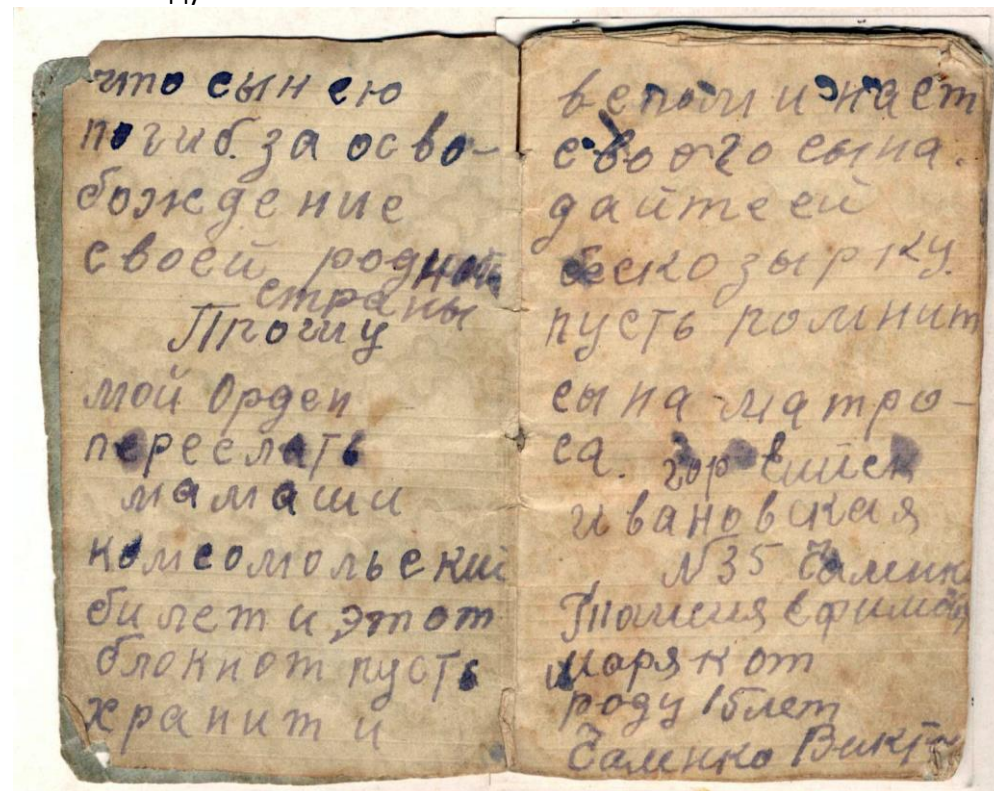 что сын ею
погиб. за осво-
бождение
своей родной
страны
Прошу
мой Орден
переслать
мамаши
комсомольский
билет и этот
блокнот пусть
хранит и
вспоминает
своего сына.
дайте ей
бескозырку.
пусть помнит
сына-матро-
са. гор ейск
ивановская
№35 Чаленко
Таисия Ефимовна
моряк от
роду 15 лет
Чаленко Виктор